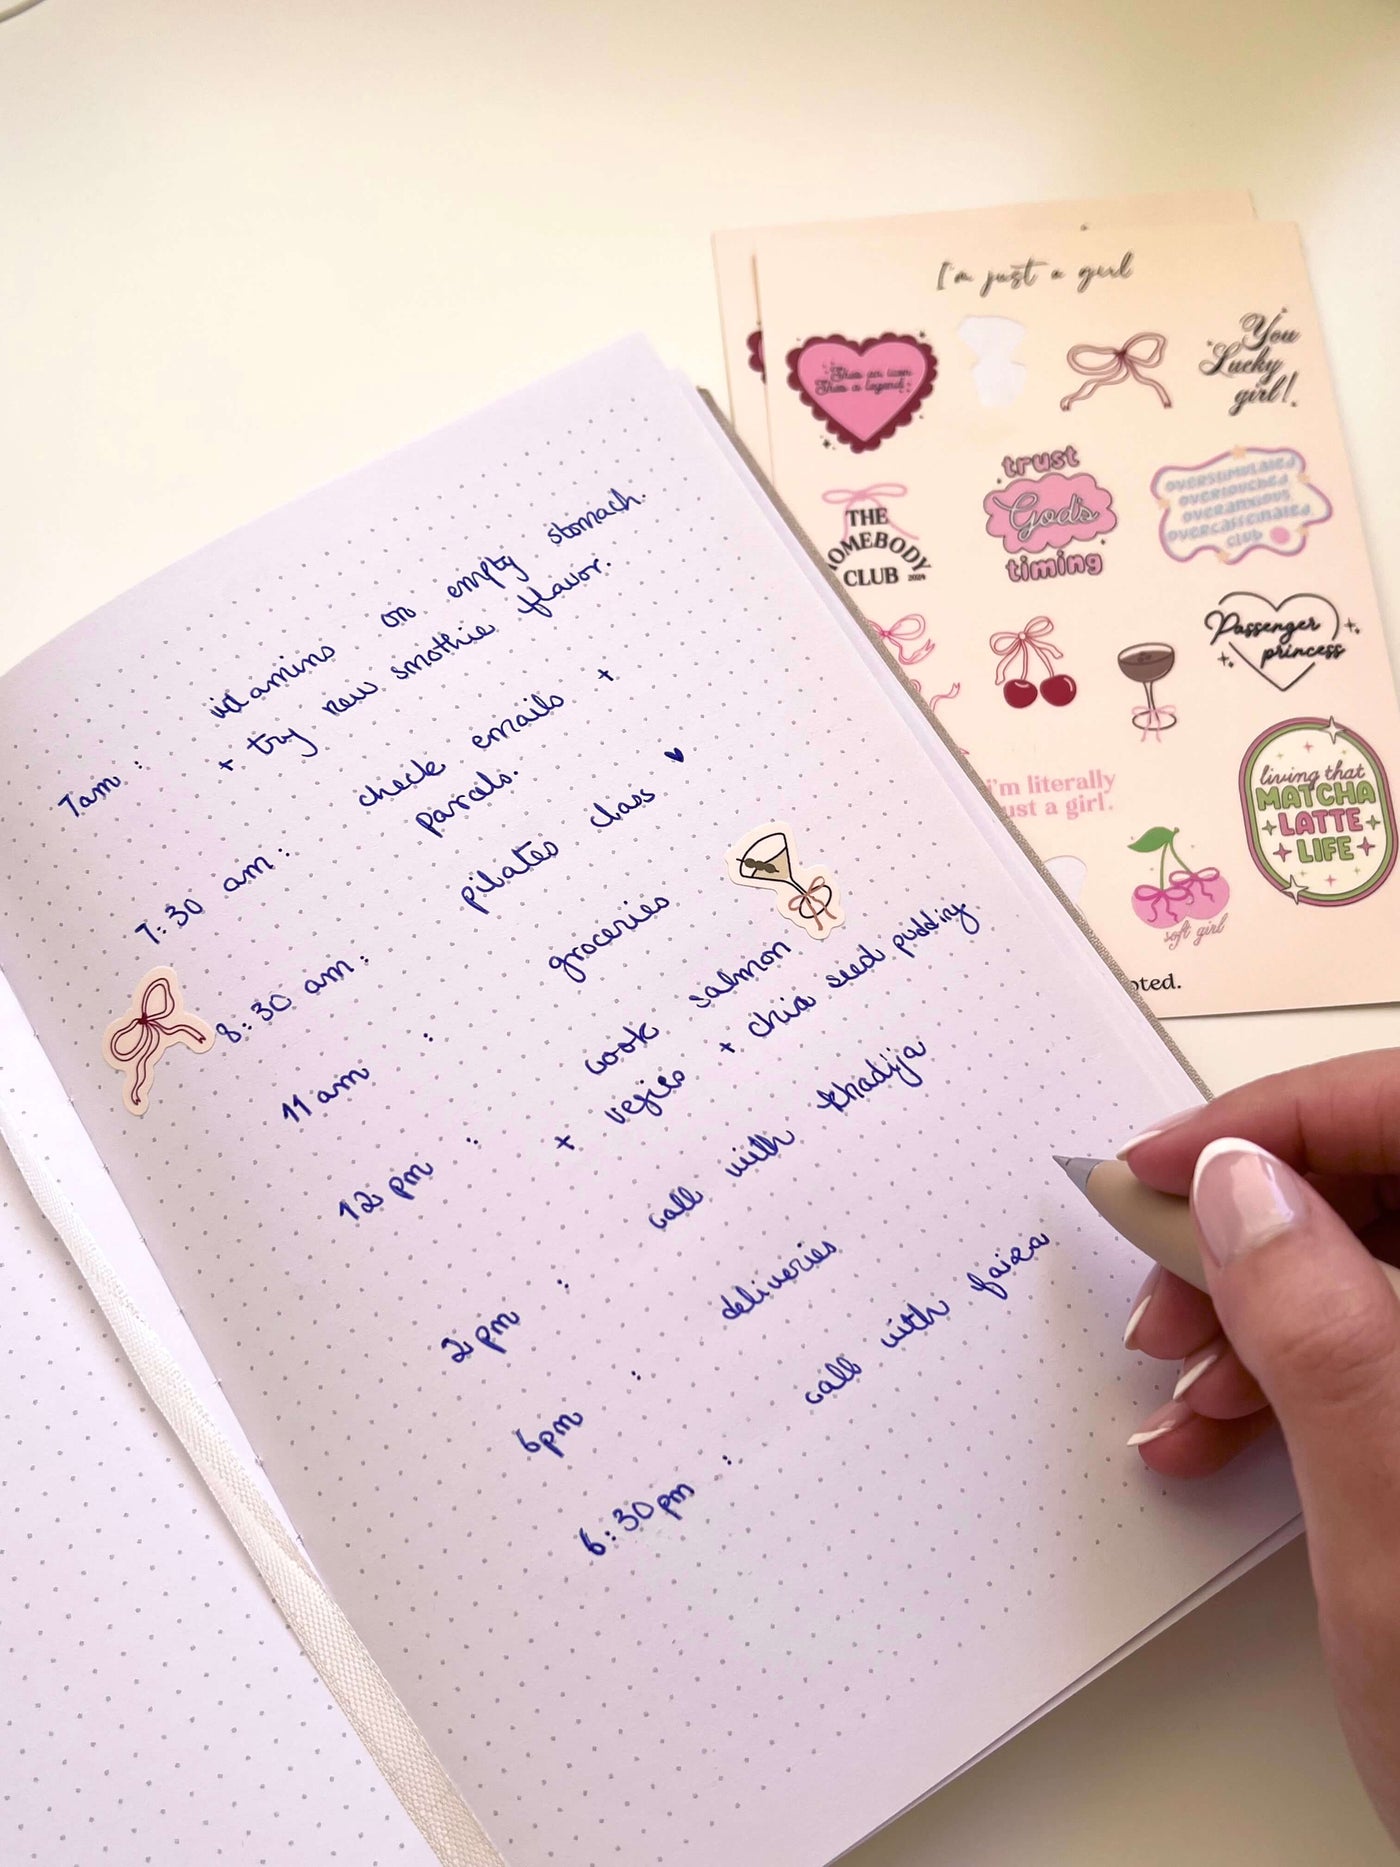 7am : vitamins on empty stomach.
+ try new smothie flavor.
7:30 am : check emails +
parcels.
8:30 am : pilates class ♥
11 am : groceries
12 pm : cook salmon
+ vegies + chia seed pudding
2 pm : call with khadija
6pm : deliveries
6:30pm : call with faiza
I'm just a girl
She's an icon
She's a legend
You
Lucky
girl!
THE
HOMEBODY
CLUB 2024
trust
God's
timing
OVERSTIMULATED
OVERTOUCHED
OVERANXIOUS
OVERCAFFEINATED
CLUB
Passenger
princess
i'm literally
just a girl.
living that
MATCHA
LATTE
LIFE
soft girl